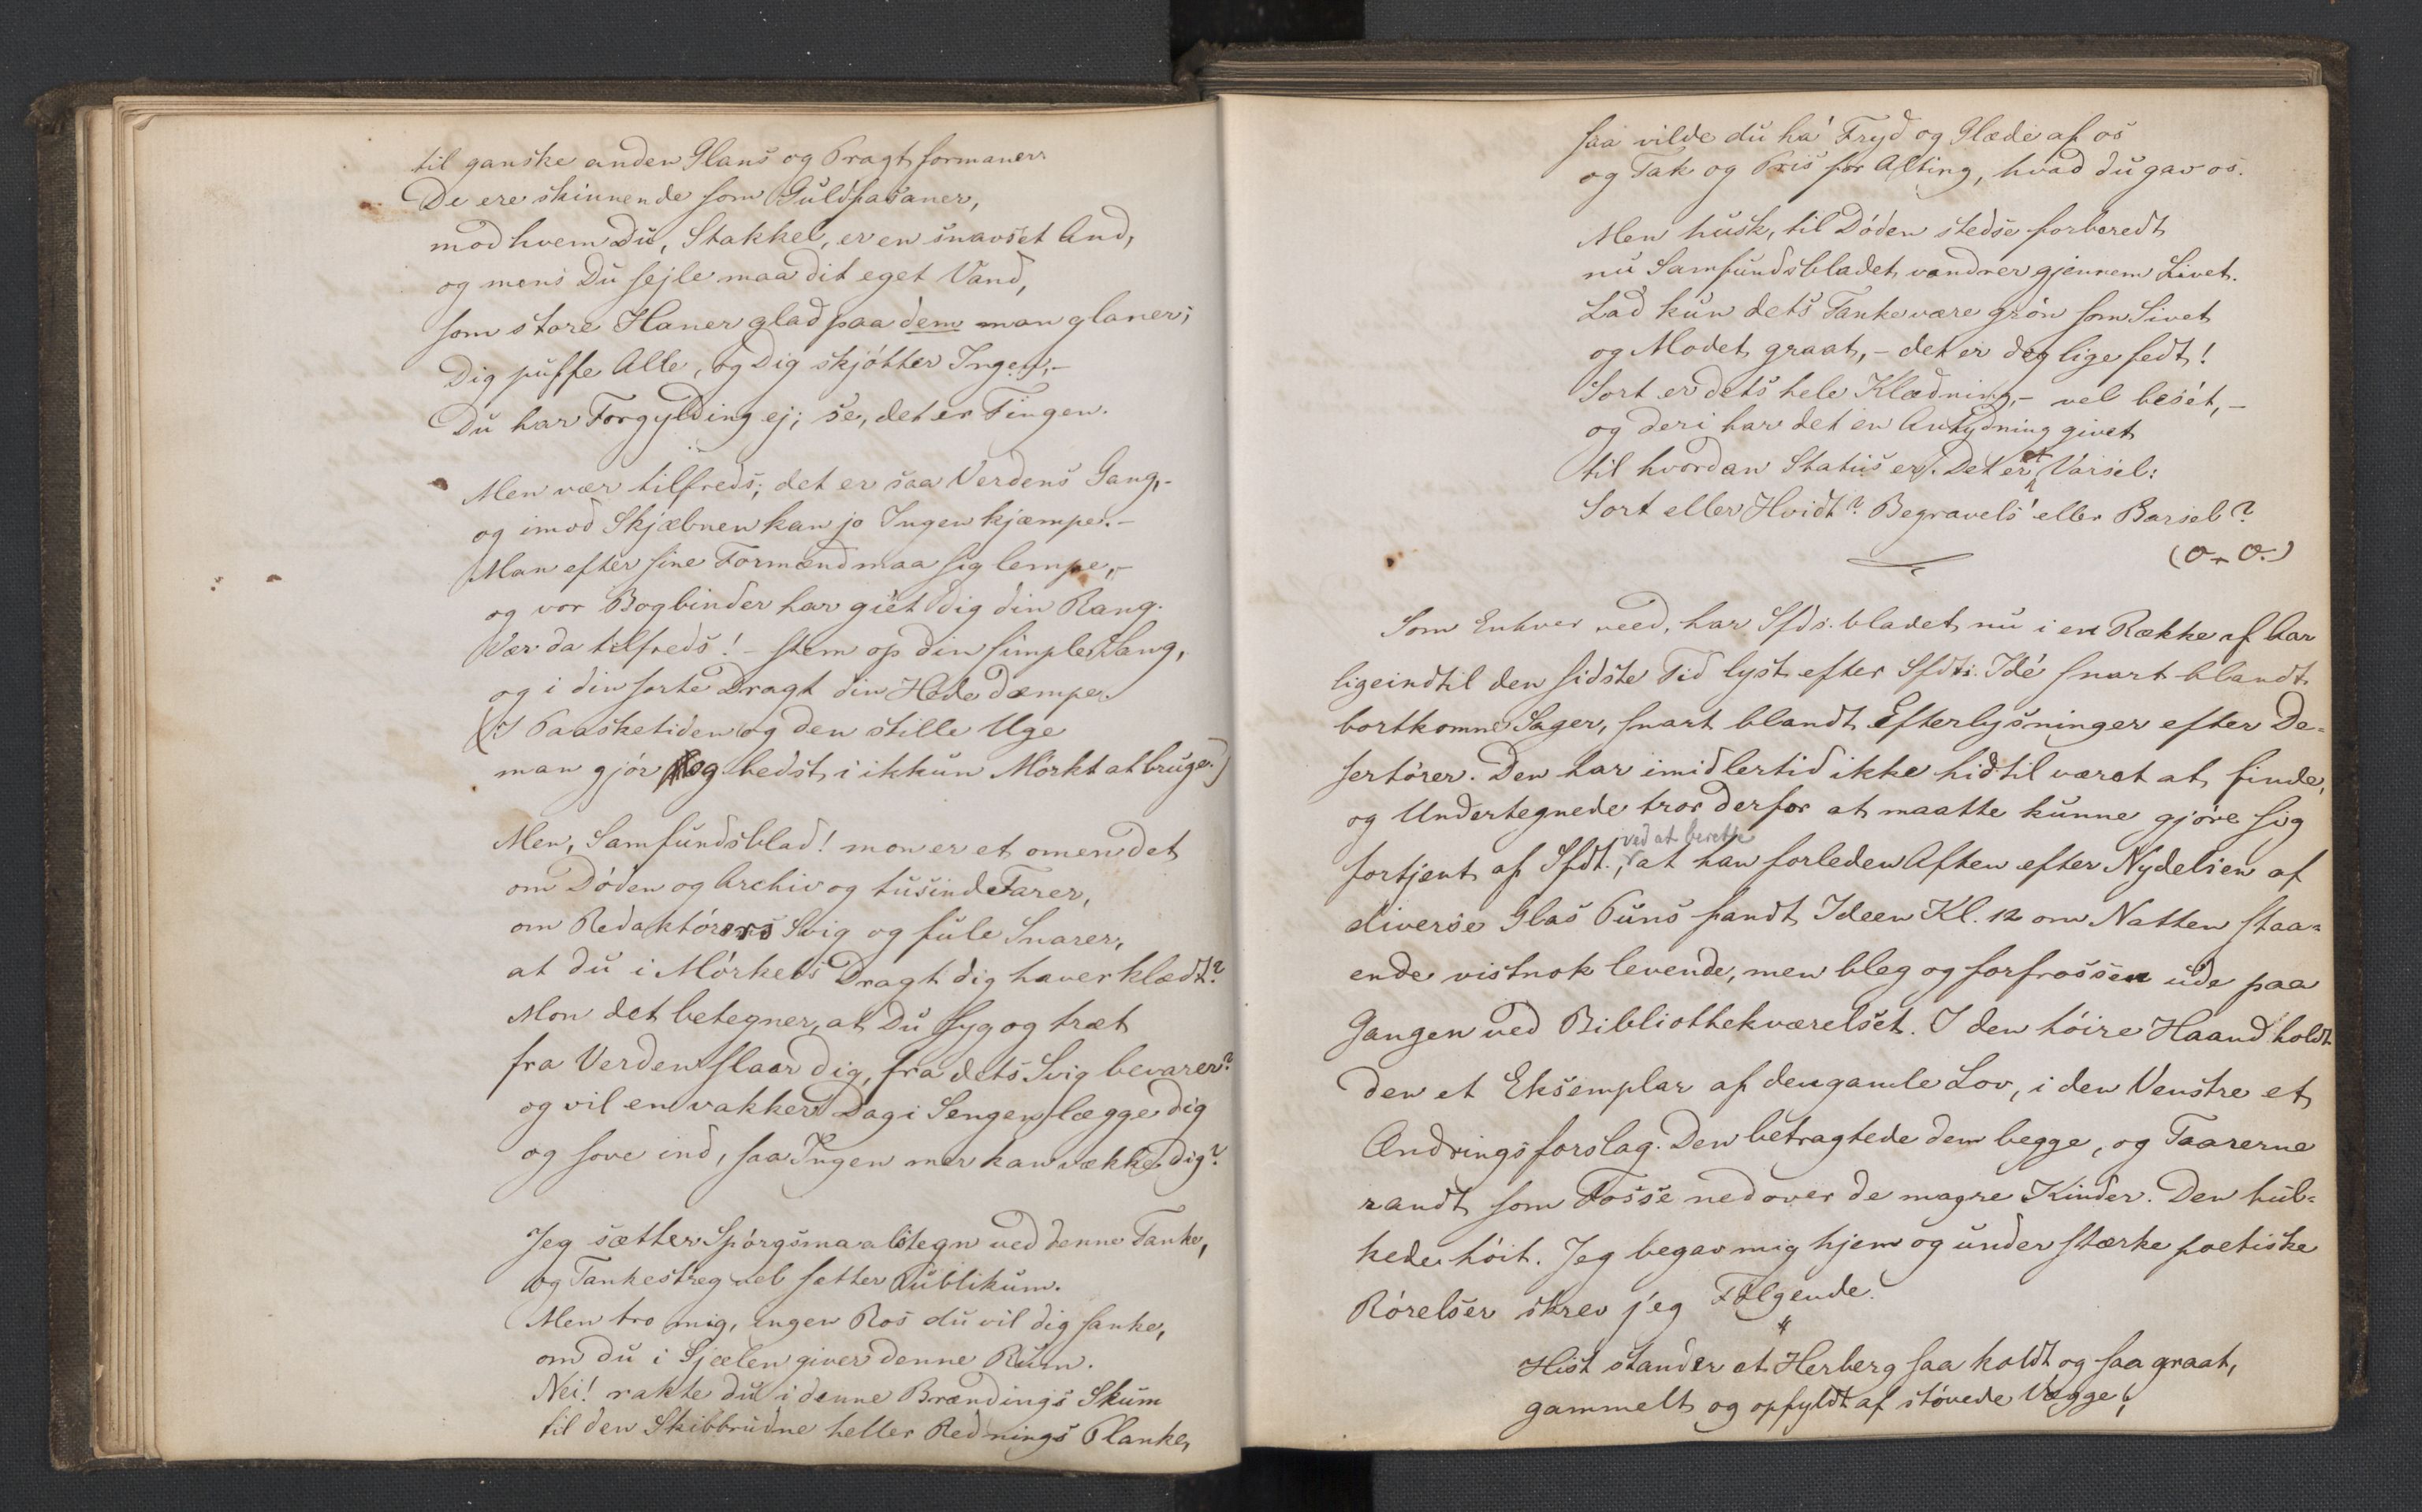 til ganske anden Glans og Pragt formaner.
De ere skinnende som Guldfasaner,
mod hvem Du, Stakkel, er en snavset And,
og mens Du sejle maa dit eget Vand,
som store Haner glad paa dem man glaner;
Dig puffe Alle, og Dig skjøtter Ingen;–
Du har Forgylding ej; se, det er Tingen.
Men vær tilfreds; det er saa Verdens Gang,–
og imod Skjæbnen kan jo Ingen kjæmpe.–
Man efter sine Formænd maa sig lempe,–
og vor Bogbinder har giet dig din Rang.
Vær da tilfreds! – stem op din simple Sang,
og i din sorte Dragt din Hede dæmpe.
(I Paasketiden og den stille Uge
man gjør sig bedst i ikkun Mørkt at bruge.)
Men, Samfundsblad! mon er et omen det
om Døden og Archiv og tusinde Farer,
om Redaktørers Svig og fule Snarer,
at du i Mørkets Dragt dig haver klædt?
Mon det betegner, at Du syg og træt
fra Verden slaar dig, fra dets Svig bevarer?
og vil en vakker Dag i Sengen lægge dig
og sove ind, saa Ingen mer kan vække dig?
Jeg sætter Spørgsmaalstegn ved denne Tanke,
og Tankestreg vel sætter Publikum.
Men tro mig, ingen Ros du vil dig sanke,
om du i Sjælen giver denne Rum.
Nei! rakte du i denne Brændings Skum
til den Skibbrudne heller Rednings Planke,
saa vilde du ha' Fryd og Glæde af os
og Tak og Pris for Alting, hvad du gav os.
Men husk, til Døden stedse forberedt
nu Samfundsbladet vandrer gjennem Livet.
Lad kun dets Tanke være grøn som Sivet
og Modet graat, – det er dog lige fedt!
Sort er dets hele Klædning, – vel beset, –
og deri har det en Antydning givet
til hvordan Status er. Det er et Varsel:
Sort eller Hvidt? Begravels' eller Barsel?
(O–O.)
Som Enhver veed, har Sfds. bladet nu i en Række af Aar
ligeindtil den sidste Tid lyst efter Sfdts. Idé snart blandt
bortkomne Sager, snart blandt Efterlysninger efter De-
sertører. Den har imidlertid ikke hidtil været at finde,
og Undertegnede tror derfor at maatte kunne gjøre sig
fortjent af Sfdt., ved at berette at han forleden Aften efter Nydelsen af
diverse Glas Puns fandt Ideen Kl. 12 om Natten staa-
ende vistnok levende, men bleg og forfrossen ude paa
Gangen ved Bibliothekværelset. I den høire Haand holdt
den et Eksemplar af den gamle Lov, i den Venstre et
Ændringsforslag. Den betragtede dem begge, og Taarerne
randt som Fosse nedover de magre Kinder. Den hul-
kede høit. Jeg begav mig hjem og under stærke poetiske
Rørelser skrev jeg Følgende.
Hist stander et Herberg saa koldt og saa graat,
gammelt og opfyldt af støvede Vægge;